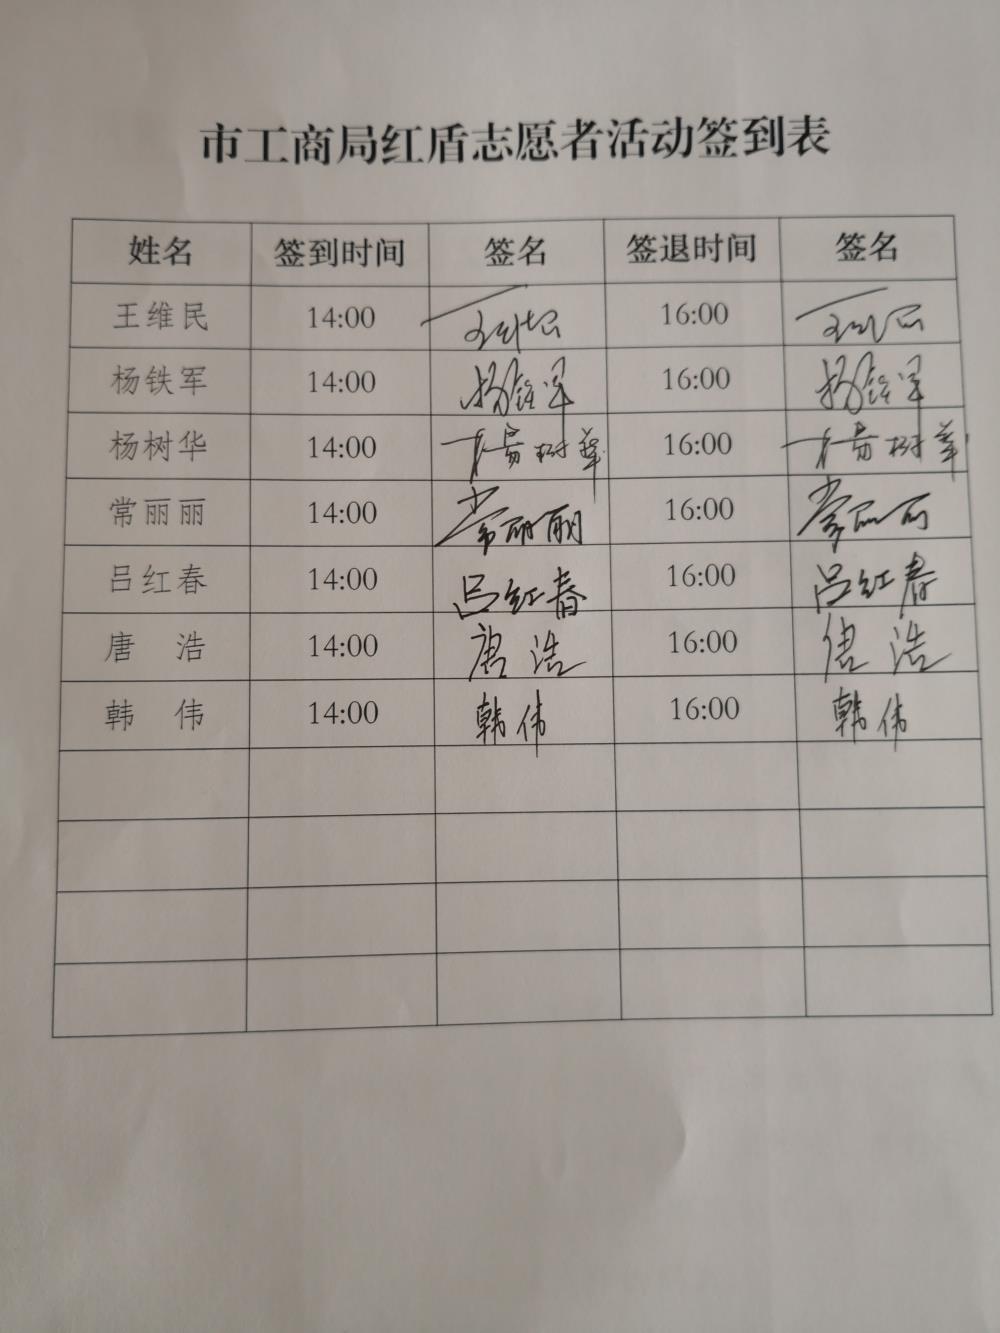 市工商局红盾志愿者活动签到表
姓名 签到时间 签名 签退时间 签名
王维民 14:00 王维民 16:00 王维民
杨铁军 14:00 杨铁军 16:00 杨铁军
杨树华 14:00 杨树华 16:00 杨树华
常丽丽 14:00 常丽丽 16:00 常丽丽
吕红春 14:00 吕红春 16:00 吕红春
唐 浩 14:00 唐浩 16:00 唐浩
韩 伟 14:00 韩伟 16:00 韩伟